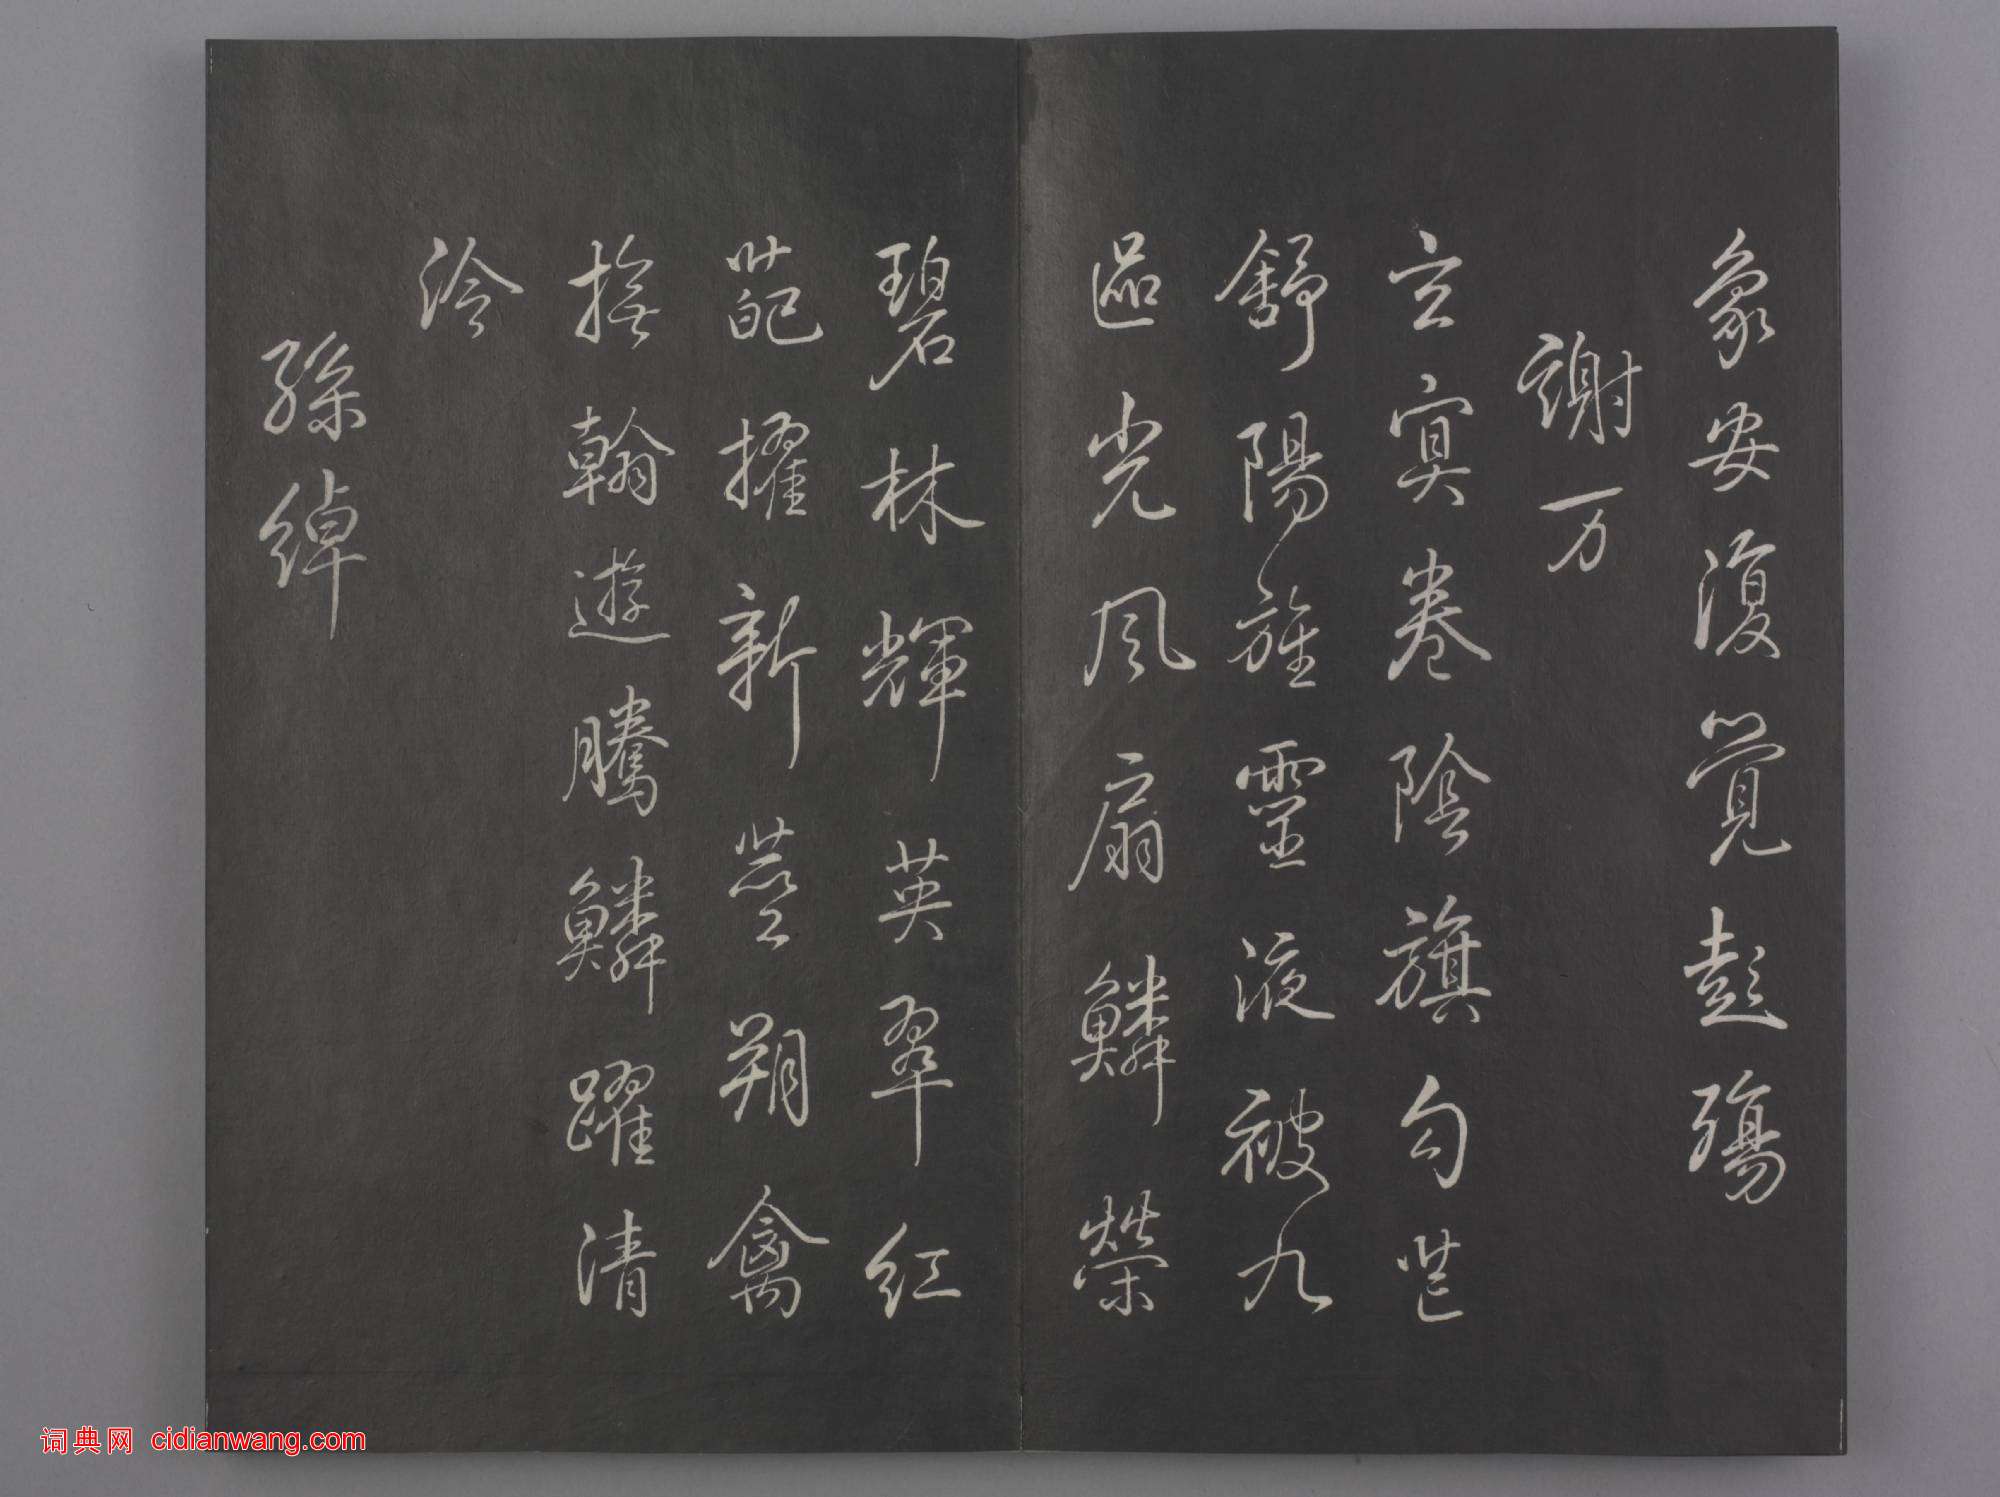 象安復覺彭殤
謝万
玄冥卷陰旗勾芒
舒陽旌靈液被九
區光風扇鱗榮
碧林輝英翠紅
葩擢新莖朔禽
撫翰遊騰鱗躍清
泠
孫綽
词典网 cidianwang.com